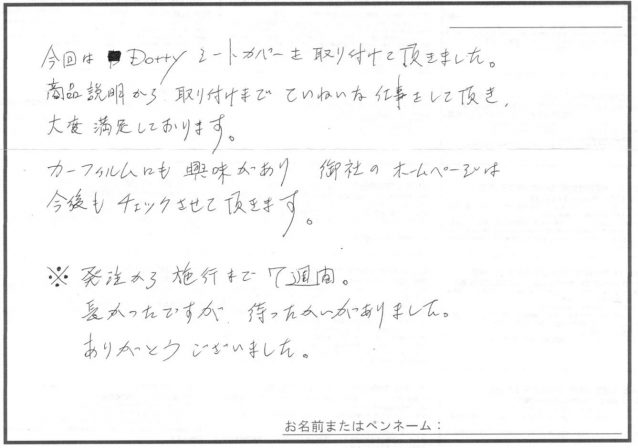 今回は Dotty シートカバーを取り付けて頂きました。
商品説明から取り付けまでていねいな仕事をして頂き、
大変満足しております。
カーフィルムにも興味があり 御社のホームページは
今後もチェックさせて頂きます。
※ 発注から施行まで7週間。
長かったですが、待ったかいがありました。
ありがとうございました。
お名前またはペンネーム：